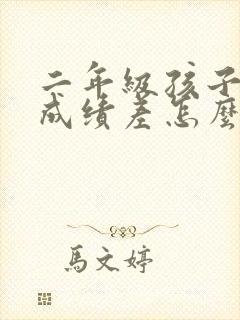 二年級孩子
成績差怎麼
馬文婷